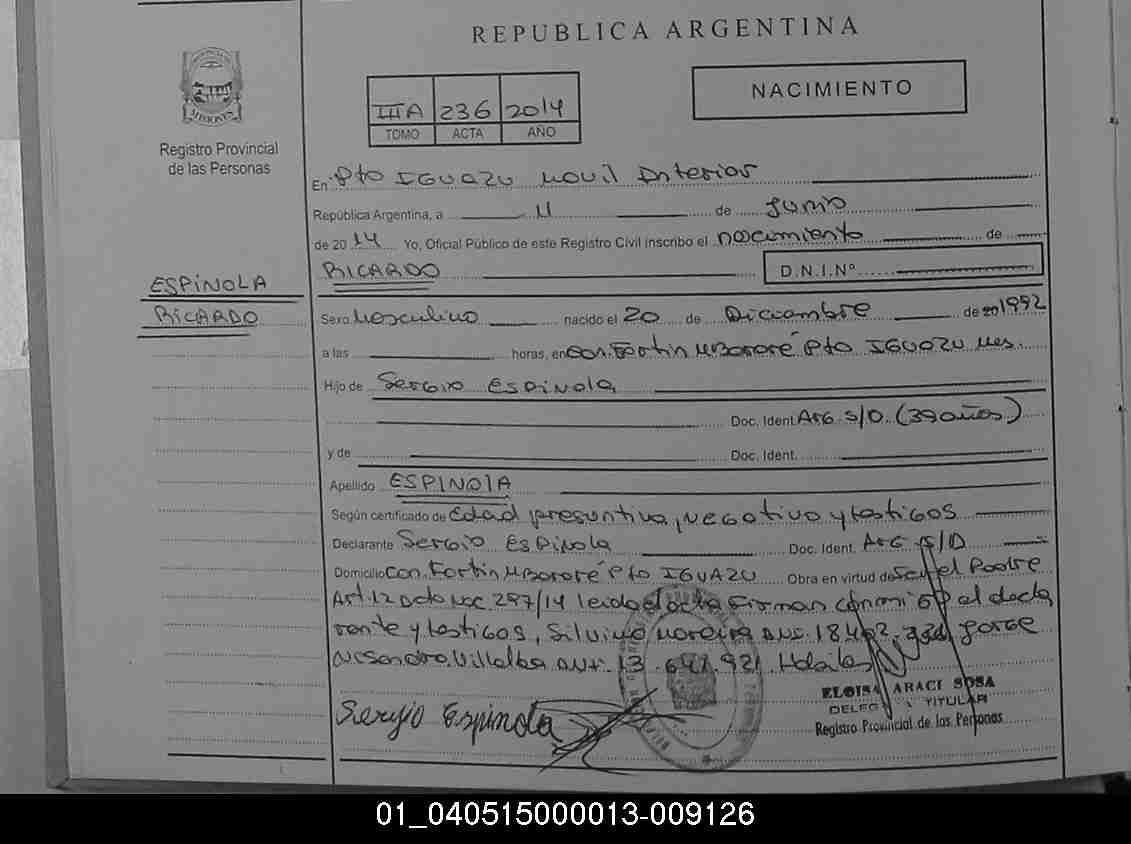 REPUBLICA ARGENTINA
PROVINCIA DE
MISIONES
Registro Provincial
de las Personas
IIIA 236 2014
TOMO ACTA AÑO
NACIMIENTO
En Pto IGUAZU Movil Interior
República Argentina, a 11 de Junio
de 2014 Yo, Oficial Público de este Registro Civil inscribo el nacimiento de
RICARDO D.N.I.Nº
ESPINOLA
RICARDO
Sexo Masculino nacido el 20 de Diciembre de 20 1992
a las horas, en Con. Fortin MBororé Pto IGUAZU Mes.
Hijo de Sergio ESPINOLA
Doc. Ident. ARG S/D (39 años)
y de Doc. Ident.
Apellido ESPINOLA
Según certificado de Edad presuntiva, negativo y testigos
Declarante Sergio ESPINOLA Doc. Ident. ARG S/D
Domicilio Con. Fortin MBororé Pto IGUAZU Obra en virtud de Ser el Padre
Art. 12 Dcto Nac. 297/14 leida el acta firman conmigo el decla
rante y testigos, Silvino Moreira DNI. 18.4 Jorge
Lisandro Villalba DNI. 13.641.921
Sergio Espinola
ELOISA ARACI SOSA
DELEGADA TITULAR
Registro Provincial de las Personas
01_040515000013-009126